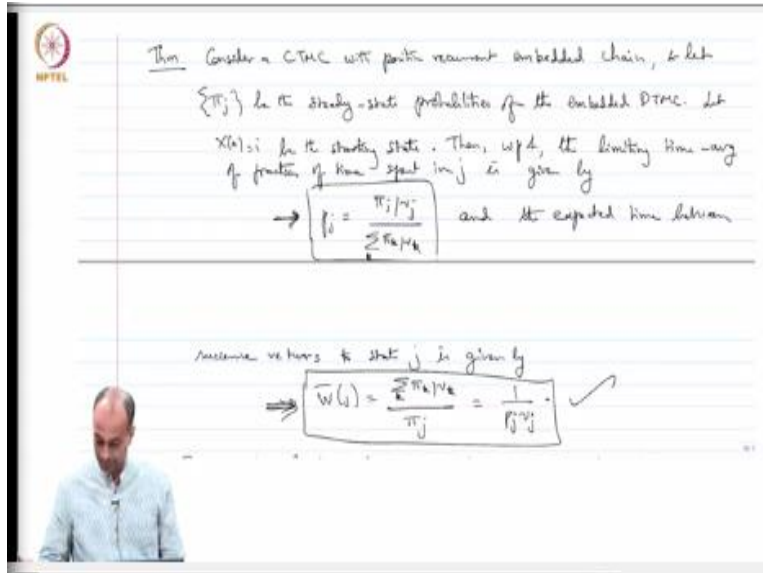 NPTEL
Thm Consider a CTMC with positive recurrent embedded chain, & let
{πj} be the steady-state probabilities of the embedded DTMC. Let
X(0)=i be the starting state. Then, wp1, the limiting time-avg
of fraction of time spent in j is given by
→ pj = πj/νj / ∑k πk/νk and the expected time between
successive returns to state j is given by
⇒ W̄(j) = ∑k πk/νk / πj = 1 / pjνj . ✓